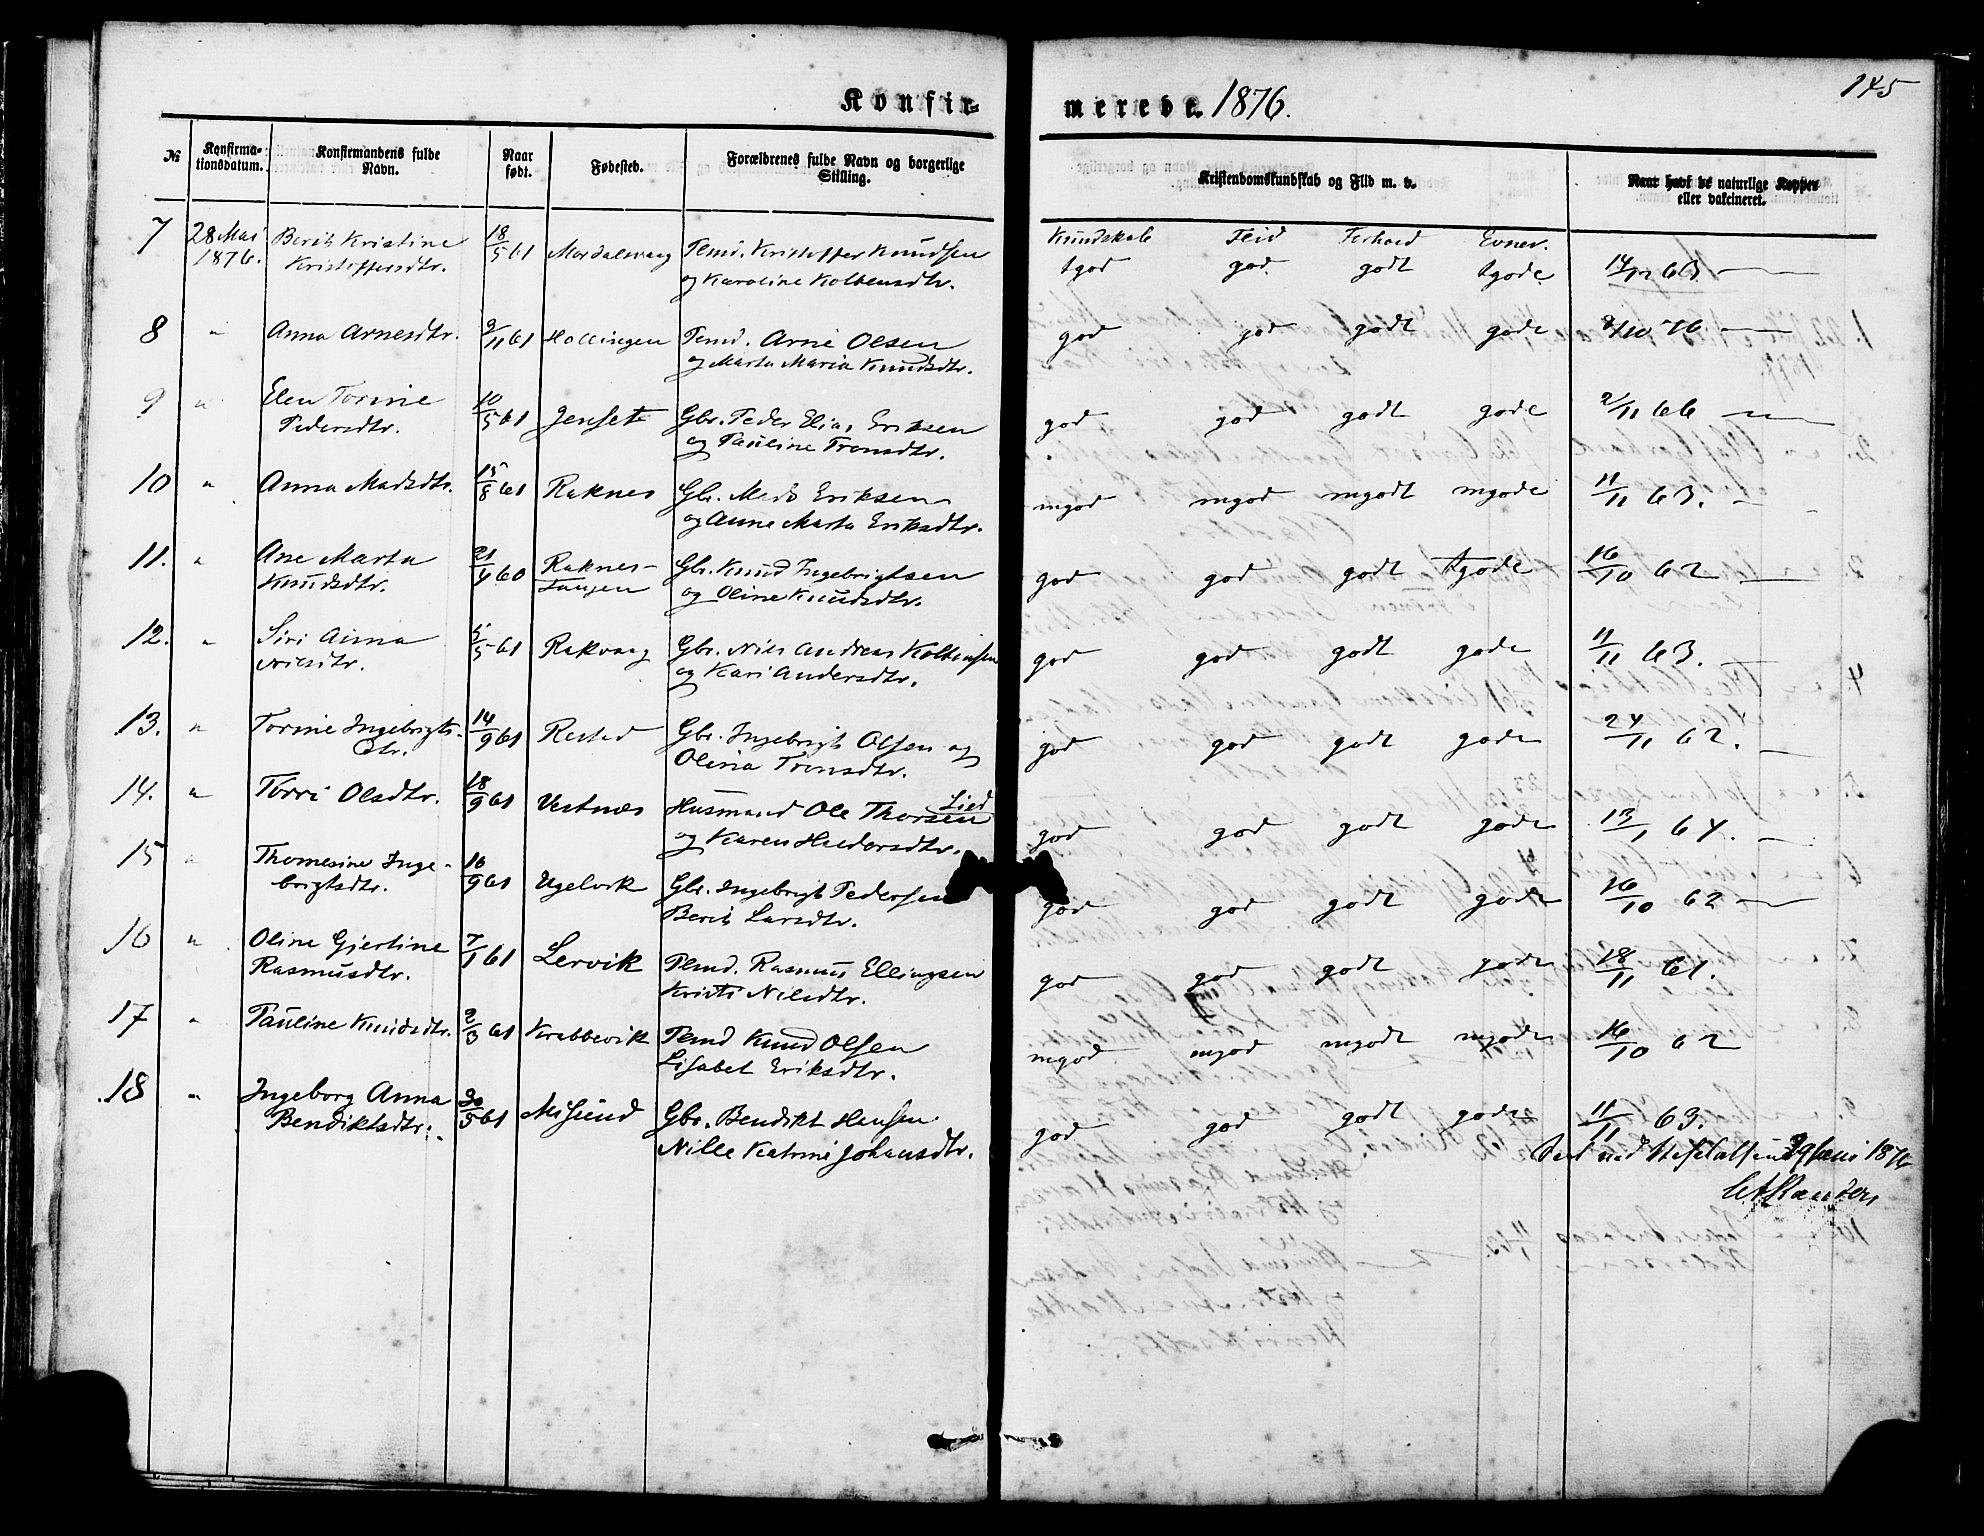 145
Konfir-merede. 1876.
№ Konfirma-tionsdatum. Konfirmandens fulde Navn. Naar født. Fødested. Forældrenes fulde Navn og borgerlige Stilling. Kristendomskundskab og Flid m. v. Naar havt de naturlige Kopper eller vakcineret.
Kundskab Flid Forhold Evner.
7 28 Mai Berit Kristine 18/5 61 Mordalsvaag Pemd. Kristoffer Knudsen tgod god godt tgode 14/12 63
1876. Kristoffersdtr. og Karoline Kolbensdtr.
8 " Anna Arnesdtr. 9/11 61 Hollingen Pemd. Arne Olsen god god godt gode 8/10 76
og Marta Maria Knudsdtr.
9 " Elen Torine 10/5 61 Jenset Gbr. Peder Elias Eriksen god god godt gode 2/11 66
Pedersdtr. og Pauline Tronsdtr.
10 " Anna Madsdtr. 15/8 61 Raknes Gbr. Mads Eriksen mgod mgod mgodt mgode 11/11 63.
og Anne Marta Eriksdtr.
11. " Ane Marta 21/4 60 Raknes- Gbr. Knud Ingebrigtsen god god godt tgode 16/10 62
Knudsdtr. Tangen og Oline Knudsdtr.
12. " Siri Anna 5/5 61 Rakvaag Gbr. Nils Andreas Kolbensen god god godt gode 11/11 63.
Nilsdtr. og Kari Andersdtr.
13. " Torine Ingebrigts- 14/9 61 Rested Gbr. Ingebrigt Olsen og god god godt gode 24/11 62.
dtr. Olina Tronsdtr.
14. " Torri Olsdtr. 18/9 61 Vestnæs Husmand Ole Thorsen Lied god god godt gode 13/1 64.
og Karen Hedersdtr.
15 " Thomesine Inge- 16/9 61 Ugelvik Gbr. Ingebrigt Pedersen god god godt gode 16/10 62
brigtsdtr. Berit Larsdtr.
16 " Oline Gjertine 7/1 61 Lervik Pemd. Rasmus Ellingsen god god godt gode 18/11 61.
Rasmusdtr. Kristi Nilsdtr.
17 " Pauline Knudsdtr. 2/3 61 Krabbevik Pemd Knud Olsen mgod mgod mgodt mgode 16/10 62
Lisabet Eriksdtr.
18 " Ingeborg Anna 30/5 61 Misund Gbr. Bendikt Hansen god god godt gode 11/11 63.
Bendiktsdtr. Nille Katrine Johansdtr.
1876